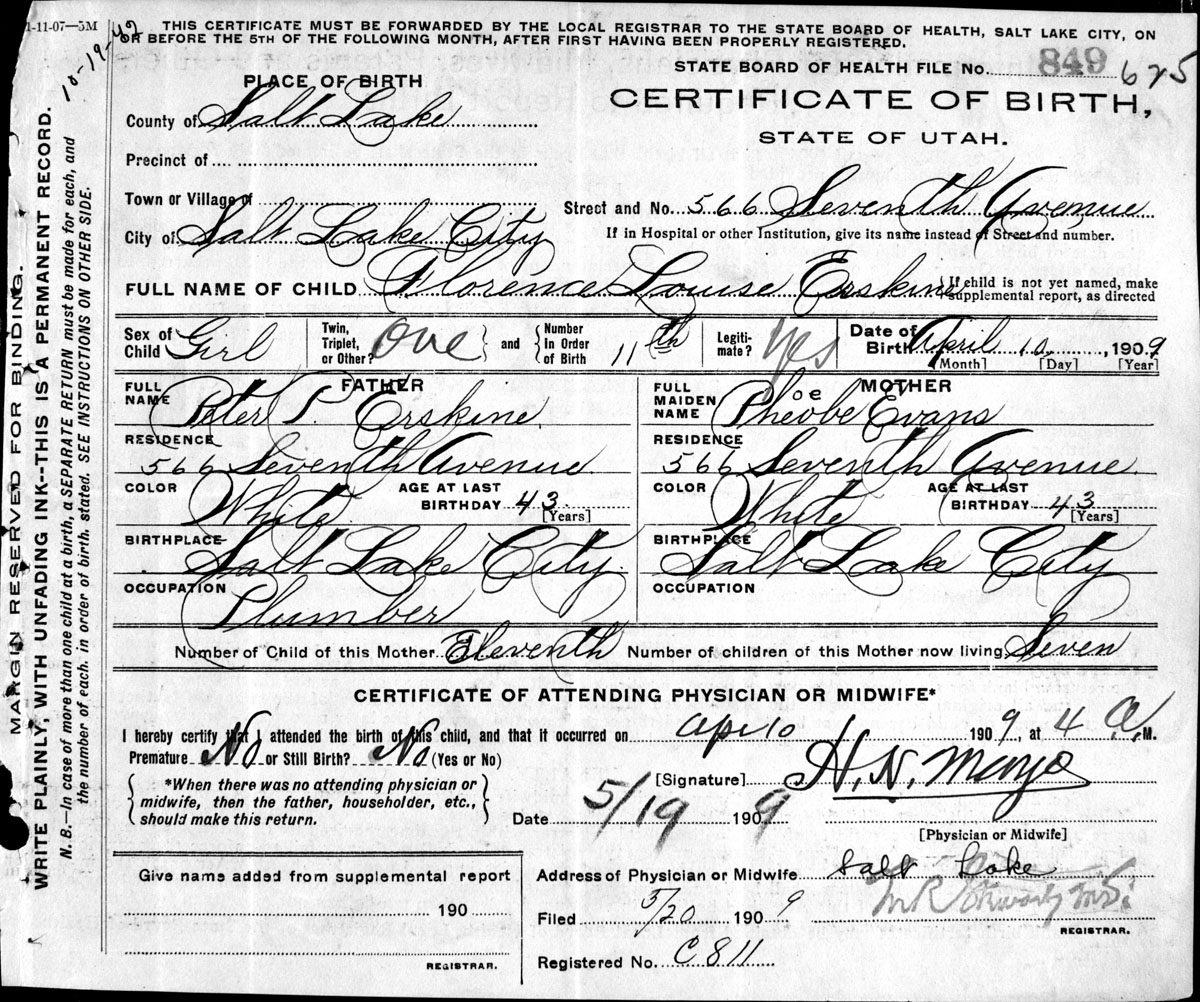 1-11-07—5M
10-19-42
THIS CERTIFICATE MUST BE FORWARDED BY THE LOCAL REGISTRAR TO THE STATE BOARD OF HEALTH, SALT LAKE CITY, ON
OR BEFORE THE 5TH OF THE FOLLOWING MONTH, AFTER FIRST HAVING BEEN PROPERLY REGISTERED.
MARGIN RESERVED FOR BINDING.
WRITE PLAINLY, WITH UNFADING INK--THIS IS A PERMANENT RECORD.
N. B.—In case of more than one child at a birth, a SEPARATE RETURN must be made for each, and
the number of each, in order of birth, stated. SEE INSTRUCTIONS ON OTHER SIDE.
STATE BOARD OF HEALTH FILE No. 849 625
CERTIFICATE OF BIRTH,
STATE OF UTAH.
PLACE OF BIRTH
County of Salt Lake
Precinct of
Town or Village of
City of Salt Lake City
Street and No. 566 Seventh Avenue
If in Hospital or other Institution, give its name instead of Street and number.
FULL NAME OF CHILD Florence Louise Erskine {If child is not yet named, make
supplemental report, as directed
Sex of Child Girl
Twin, Triplet, or Other? One } and { Number In Order of Birth 11th
Legiti-mate? Yes
Date of Birth April 10, 1909
[Month] [Day] [Year]
FATHER
FULL NAME Peter P. Erskine
RESIDENCE
566 Seventh Avenue
COLOR White AGE AT LAST BIRTHDAY 43
[Years]
BIRTHPLACE
Salt Lake City
OCCUPATION
Plumber
MOTHER
FULL MAIDEN NAME Pheobe Evans
oe
RESIDENCE
566 Seventh Avenue
COLOR White AGE AT LAST BIRTHDAY 43
[Years]
BIRTHPLACE
Salt Lake City
OCCUPATION
Number of Child of this Mother Eleventh Number of children of this Mother now living Seven
CERTIFICATE OF ATTENDING PHYSICIAN OR MIDWIFE*
I hereby certify that I attended the birth of this child, and that it occurred on Apr 10 1909, at 4 A.M.
Premature No or Still Birth? No (Yes or No)
*When there was no attending physician or
midwife, then the father, householder, etc.,
should make this return.
[Signature] H. N. Mayo
Date 5/19 1909
[Physician or Midwife]
Give name added from supplemental report
190
REGISTRAR.
Address of Physician or Midwife Salt Lake
Filed 5/20 1909
REGISTRAR.
Registered No. C811